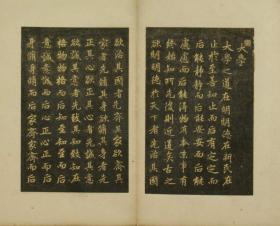 大學
大學之道在明明德在新民在
止於至善知止而后有定定而
后能靜靜而后能安安而后能
慮慮而后能得物有本末事有
終始知所先後則近道矣古之
欲明明德於天下者先治其國
欲治其國者先齊其家欲齊其
家者先脩其身欲脩其身者先
正其心欲正其心者先誠其意
欲誠其意者先致其知致知在
格物物格而后知至知至而后
意誠意誠而后心正心正而后
身脩身脩而后家齊家齊而后